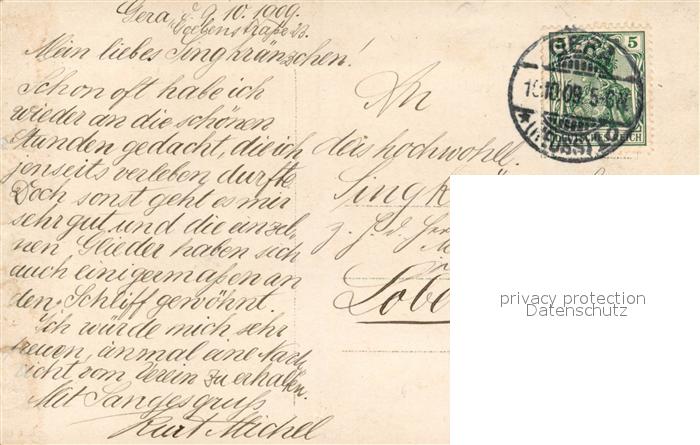 Gera, d. 9.10.1909.
Mein liebes Singkränzchen!
Schon oft habe ich
wieder an die schönen
Stunden gedacht, die ich
jenseits verleben durfte.
Doch sonst geht es mir
sehr gut und die einzel-
nen Glieder haben sich
auch einigermaßen an
den Schliff gewöhnt.
Ich würde mich sehr
freuen, einmal eine Nach-
richt vom Verein zu erhalten.
Mit Sangesgruß
Kurt Michel
An
das hochwohll.
Singk
z. H. d.
Lobe
GERA
5
REICH
privacy protection
Datenschutz